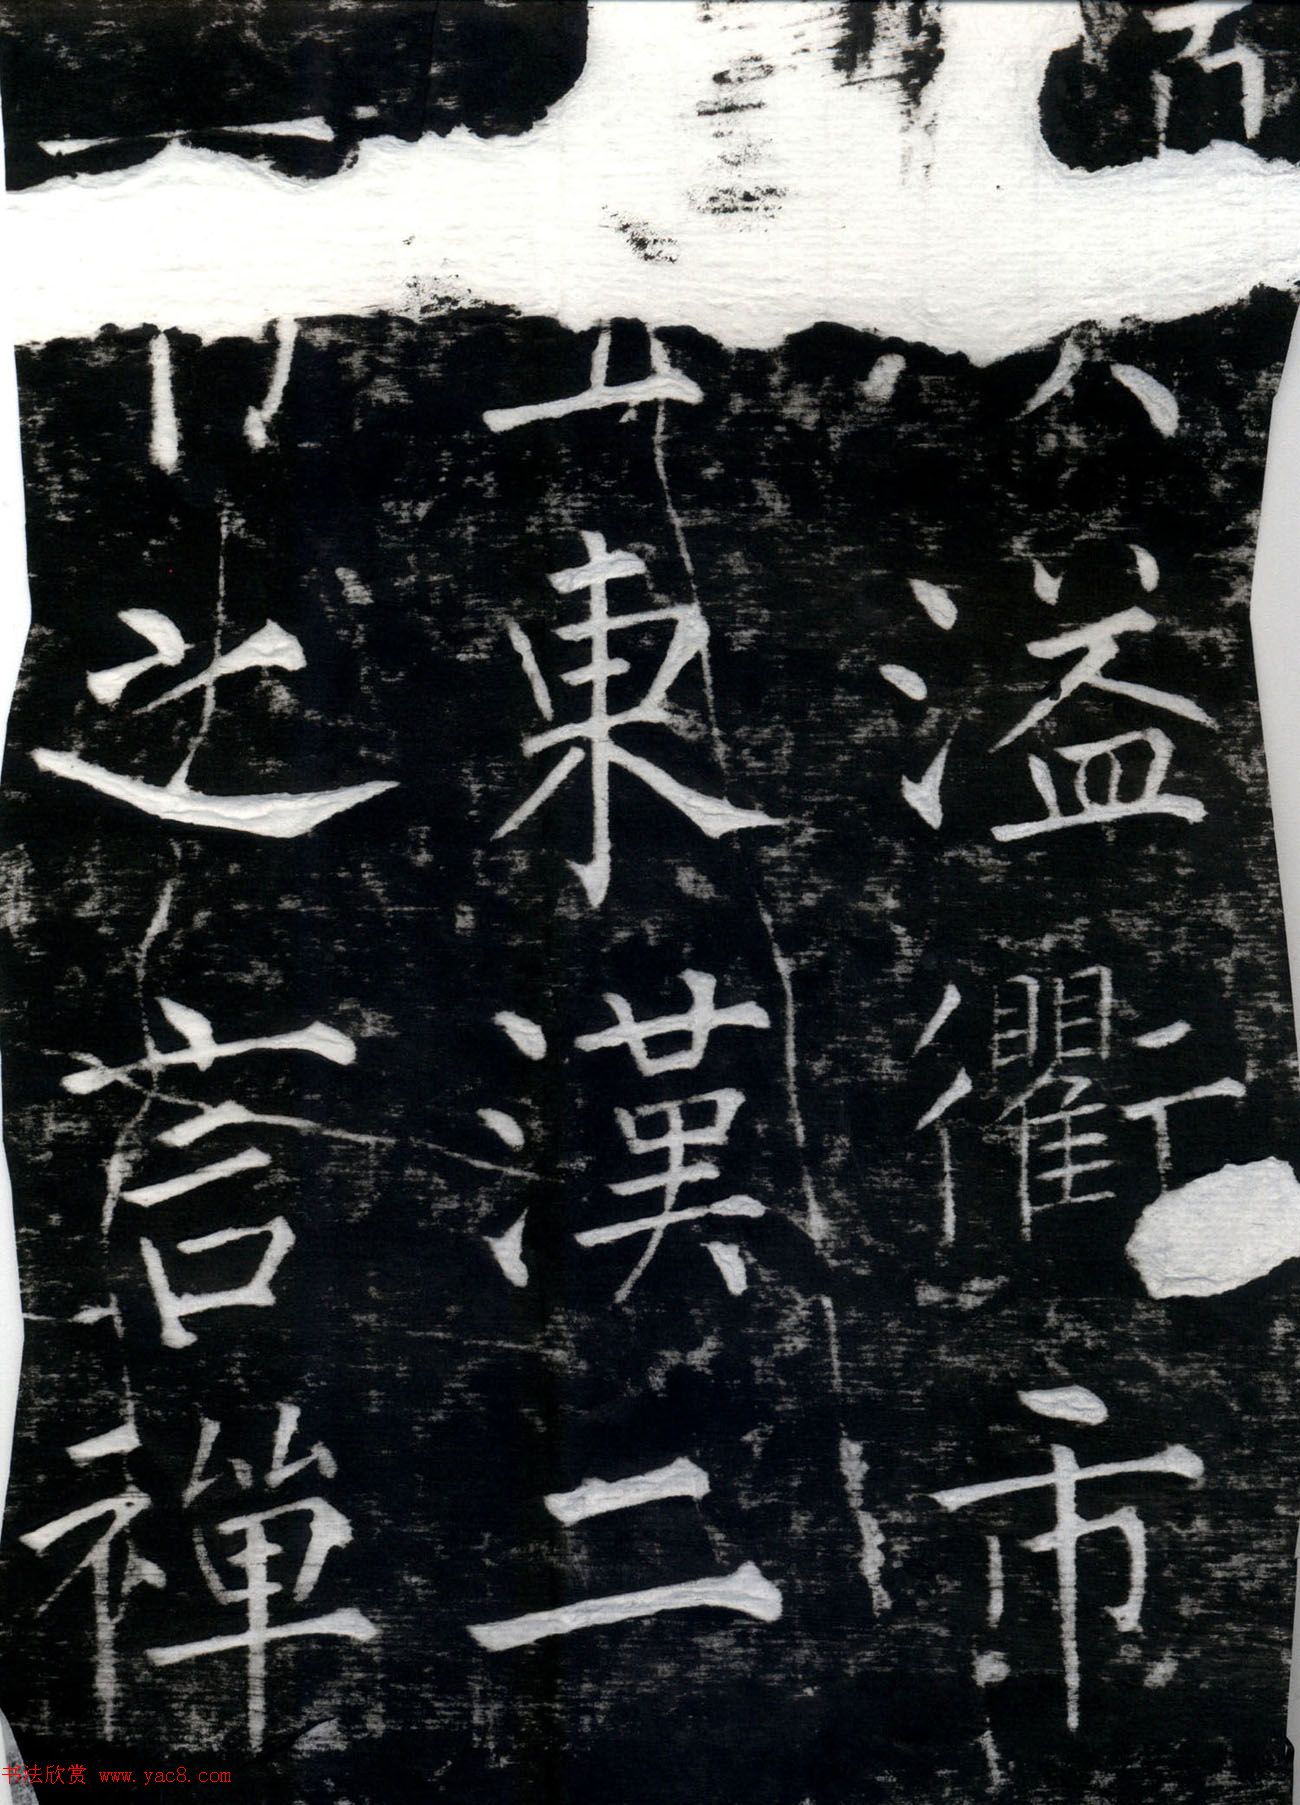 溢衢市
東漢二
之言禪
书法欣赏 www.yac8.com